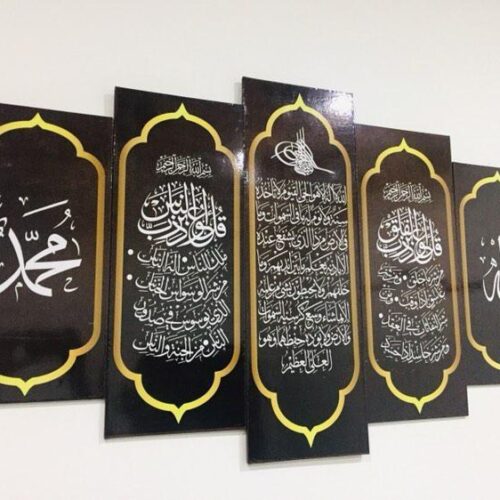 بسم الله الرحمن الرحيم
قل أعوذ برب الفلق
من شر ما خلق ومن شر
غاسق إذا وقب ومن
شر النفاثات في العقد
ومن شر حاسد إذا حسد
الله لا إله إلا هو الحي القيوم لا تأخذه
سنة ولا نوم له ما في السموات وما
في الأرض من ذا الذي يشفع عنده
إلا بإذنه يعلم ما بين أيديهم وما
خلفهم ولا يحيطون بشيء من علمه
إلا بما شاء وسع كرسيه السموات
والأرض ولا يؤده حفظهما وهو
العلي العظيم
بسم الله الرحمن الرحيم
قل أعوذ برب الناس
ملك الناس إله الناس
من شر الوسواس الخناس
الذي يوسوس في صدور
الناس من الجنة والناس
محمد